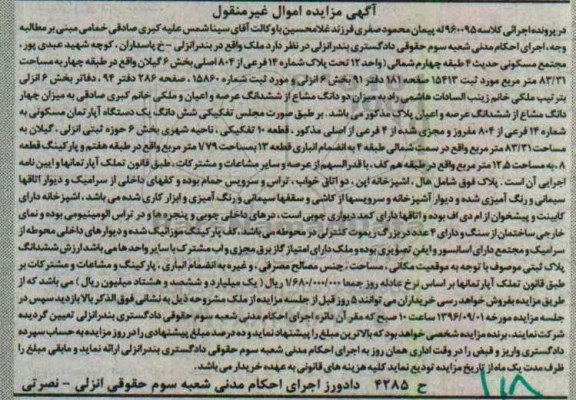 آگهی مزایده اموال غیرمنقول
در پرونده اجرائی کلاسه ۹۶۰۰۹۵ له پیمان محمود صفری فرزند غلامحسین با وکالت آقای سینا شمس علیه کبری صادقی خمامی مبنی بر مطالبه
وجه، اجرای احکام مدنی شعبه سوم حقوقی دادگستری بندرانزلی در نظر دارد ملک واقع در بندرانزلی - خ پاسداران . کوچه شهید عبدی پور.
مجتمع مسکونی حدیث ۴ طبقه چهارم شمالی (واحد ۱۲) تحت پلاک شماره ۱۴ فرعی از ۸۰۴ اصلی بخش ۶ گیلان واقع در طبقه چهار به مساحت
۸۳/۳۱ متر مربع مورد ثبت ۱۵۴۱۳ صفحه ۱۸۱ دفتر ۹۱ بخش ۶ انزلی و مورد ثبت شماره ۱۵۸۶۰ ، صفحه ۲۸۶ دفتر ۹۴ ، دفاتر بخش ۶ انزلی
بترتیب ملکی خانم زینب السادات هاشمی راد به میزان دو دانگ مشاع از ششدانگ عرصه و اعیان و ملکی خانم کبری صادقی به میزان چهار
دانگ مشاع از ششدانگ عرصه و اعیان پلاک مذکور می باشد. بر طبق صورت مجلس تفکیکی شش دانگ یک دستگاه آپارتمان مسکونی به
شماره ۱۴ فرعی از ۸۰۴ مفروز و مجزی شده از ۴ فرعی از اصلی مذکور ، قطعه ۱۰ تفکیکی ، ناحیه شهری بخش ۶ حوزه ثبتی انزلی ، گیلان به
مساحت ۸۳/۳۱ متر مربع واقع در سمت شمالی طبقه ۴ به انضمام انباری قطعه ۱۳ بمساحت ۷/۷۹ متر مربع واقع در طبقه هفتم و پارکینگ قطعه
۸ ، به مساحت ۱۲.۵ متر مربع واقع در طبقه هم کف ، با قدرالسهم از عرصه و سایر مشاعات و مشترکات ، طبق قانون تملک آپارتمانها و آیین نامه
اجرایی آن است . پلاک فوق شامل هال ، آشپزخانه اپن ، دو اتاق خواب ، تراس و سرویس حمام بوده و کفهای داخلی از سرامیک و دیوار اتاقها
سیمانی و رنگ آمیزی شده و دیوار آشپزخانه و سرویسها از کاشی و سقفها سیمانی و رنگ آمیزی و ابزار کاری شده می باشد ، آشپزخانه دارای
کابینت و پیشخوان از ام دی اف بوده و اتاقها دارای کمد دیواری چوبی است ، درهای داخلی چوبی و پنجره ها و در تراس آلومینیومی بوده و نمای
خارجی ساختمان از سنگ و دارای ۴ عدد در بزرگ ریموت کنترلی در محوطه می باشد. کف پارکینگ موزائیک شده و دیوارهای داخلی محوطه از
سرامیک و مجتمع دارای آسانسور و آیفن تصویری بوده و ملک دارای امتیاز گاز برق مجزی و آب مشترک با سایر واحدها می باشد ارزش ششدانگ
پلاک ثبتی موصوف با توجه به موقعیت مکانی ، مساحت ، جنس مصالح مصرفی ، و غیره به انضمام انباری ، پارکینگ و مشاعات و مشترکات بر
طبق قانون تملک آپارتمانها بر اساس نرخ عادله روز جمعا ۱/۶۸۰/۰۰۰/۰۰۰ ریال ( یک میلیارد و ششصد و هشتاد میلیون ریال ) می باشد که از
طریق مزایده بفروش خواهد رسی خریداران می توانند ۵ روز قبل از جلسه مزایده از ملک مشروحه ذیل به نشانی فوق الذکر بالا بازدید سپس در
جلسه مزایده مورخه ۱۳۹۶/۰۹/۰۱ ساعت ۱۰ صبح که مقر آن دایره اجرای احکام مدنی شعبه سوم حقوقی دادگستری بندرانزلی تعیین گردیده
شرکت نمایند، برنده مزایده شخصی خواهد بود که بالاترین مبلغ را پیشنهاد نماید و ده درصد مبلغ پیشنهادی را در روز مزایده به حساب سپرده
دادگستری واریز و قبض را در وقت اداری همان روز به اجرای احکام مدنی شعبه سوم حقوقی دادگستری بندرانزلی ارائه نماید و مابقی مبلغ را
ظرف مدت یک ماه از تاریخ مزایده تودیع نماید کلیه هزینه های قانونی به عهده خریدار می باشد.
ح ۴۲۸۵ دادورز اجرای احکام مدنی شعبه سوم حقوقی انزلی - نصرتی